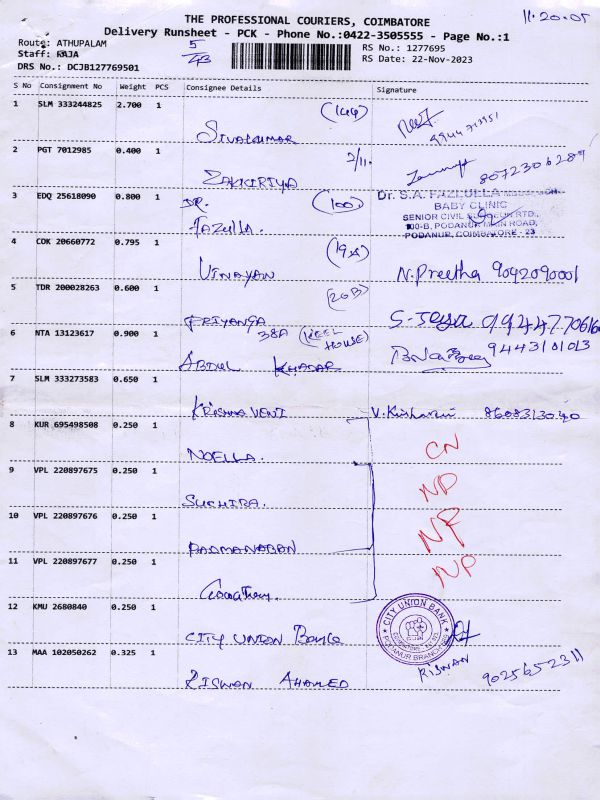 THE PROFESSIONAL COURIERS, COIMBATORE
11.20.05
Delivery Runsheet - PCK - Phone No.:0422-3505555 - Page No.:1
Route: ATHUPALAM
5/43
RS No.: 1277695
Staff: RAJA
RS Date: 22-Nov-2023
DRS No.: DCJB127769501
S No Consignment No Weight PCS Consignee Details Signature
1 SLM 333244825 2.700 1
(144)
SIVAKUMAR
2 PGT 7012985 0.400 1
2/11.
ZAKKIRIYA 8072306287
3 EDQ 25618090 0.800 1
DR. (100)
FAZULLA.
Dr. S.A. FAZLULLA
BABY CLINIC
SENIOR CIVIL SURGEON RTD.,
100-B, PODANUR MAIN ROAD,
PODANUR, COIMBATORE - 23
4 COK 20660772 0.795 1
(19A)
VINAYAN N.Preetha 9042090001
5 TDR 200028263 0.600 1
(20B)
PRIYANGA S-Jeya
6 NTA 13123617 0.900 1
38A (KEEL HOUSE)
ABDUL KHADAR 9443101013
7 SLM 333273583 0.650 1
KRISHNAVENI
8 KUR 695498508 0.250 1
NOELLA. CN
9 VPL 220897675 0.250 1
SUCHIRA. NP
10 VPL 220897676 0.250 1
PADMANABAN NP
11 VPL 220897677 0.250 1
NP
12 KMU 2680840 0.250 1
CITY UNION
CITY UNION BANK
PODANUR BRANCH
13 MAA 102050262 0.325 1
RISWAN AHAMED RISWAN 9025652311